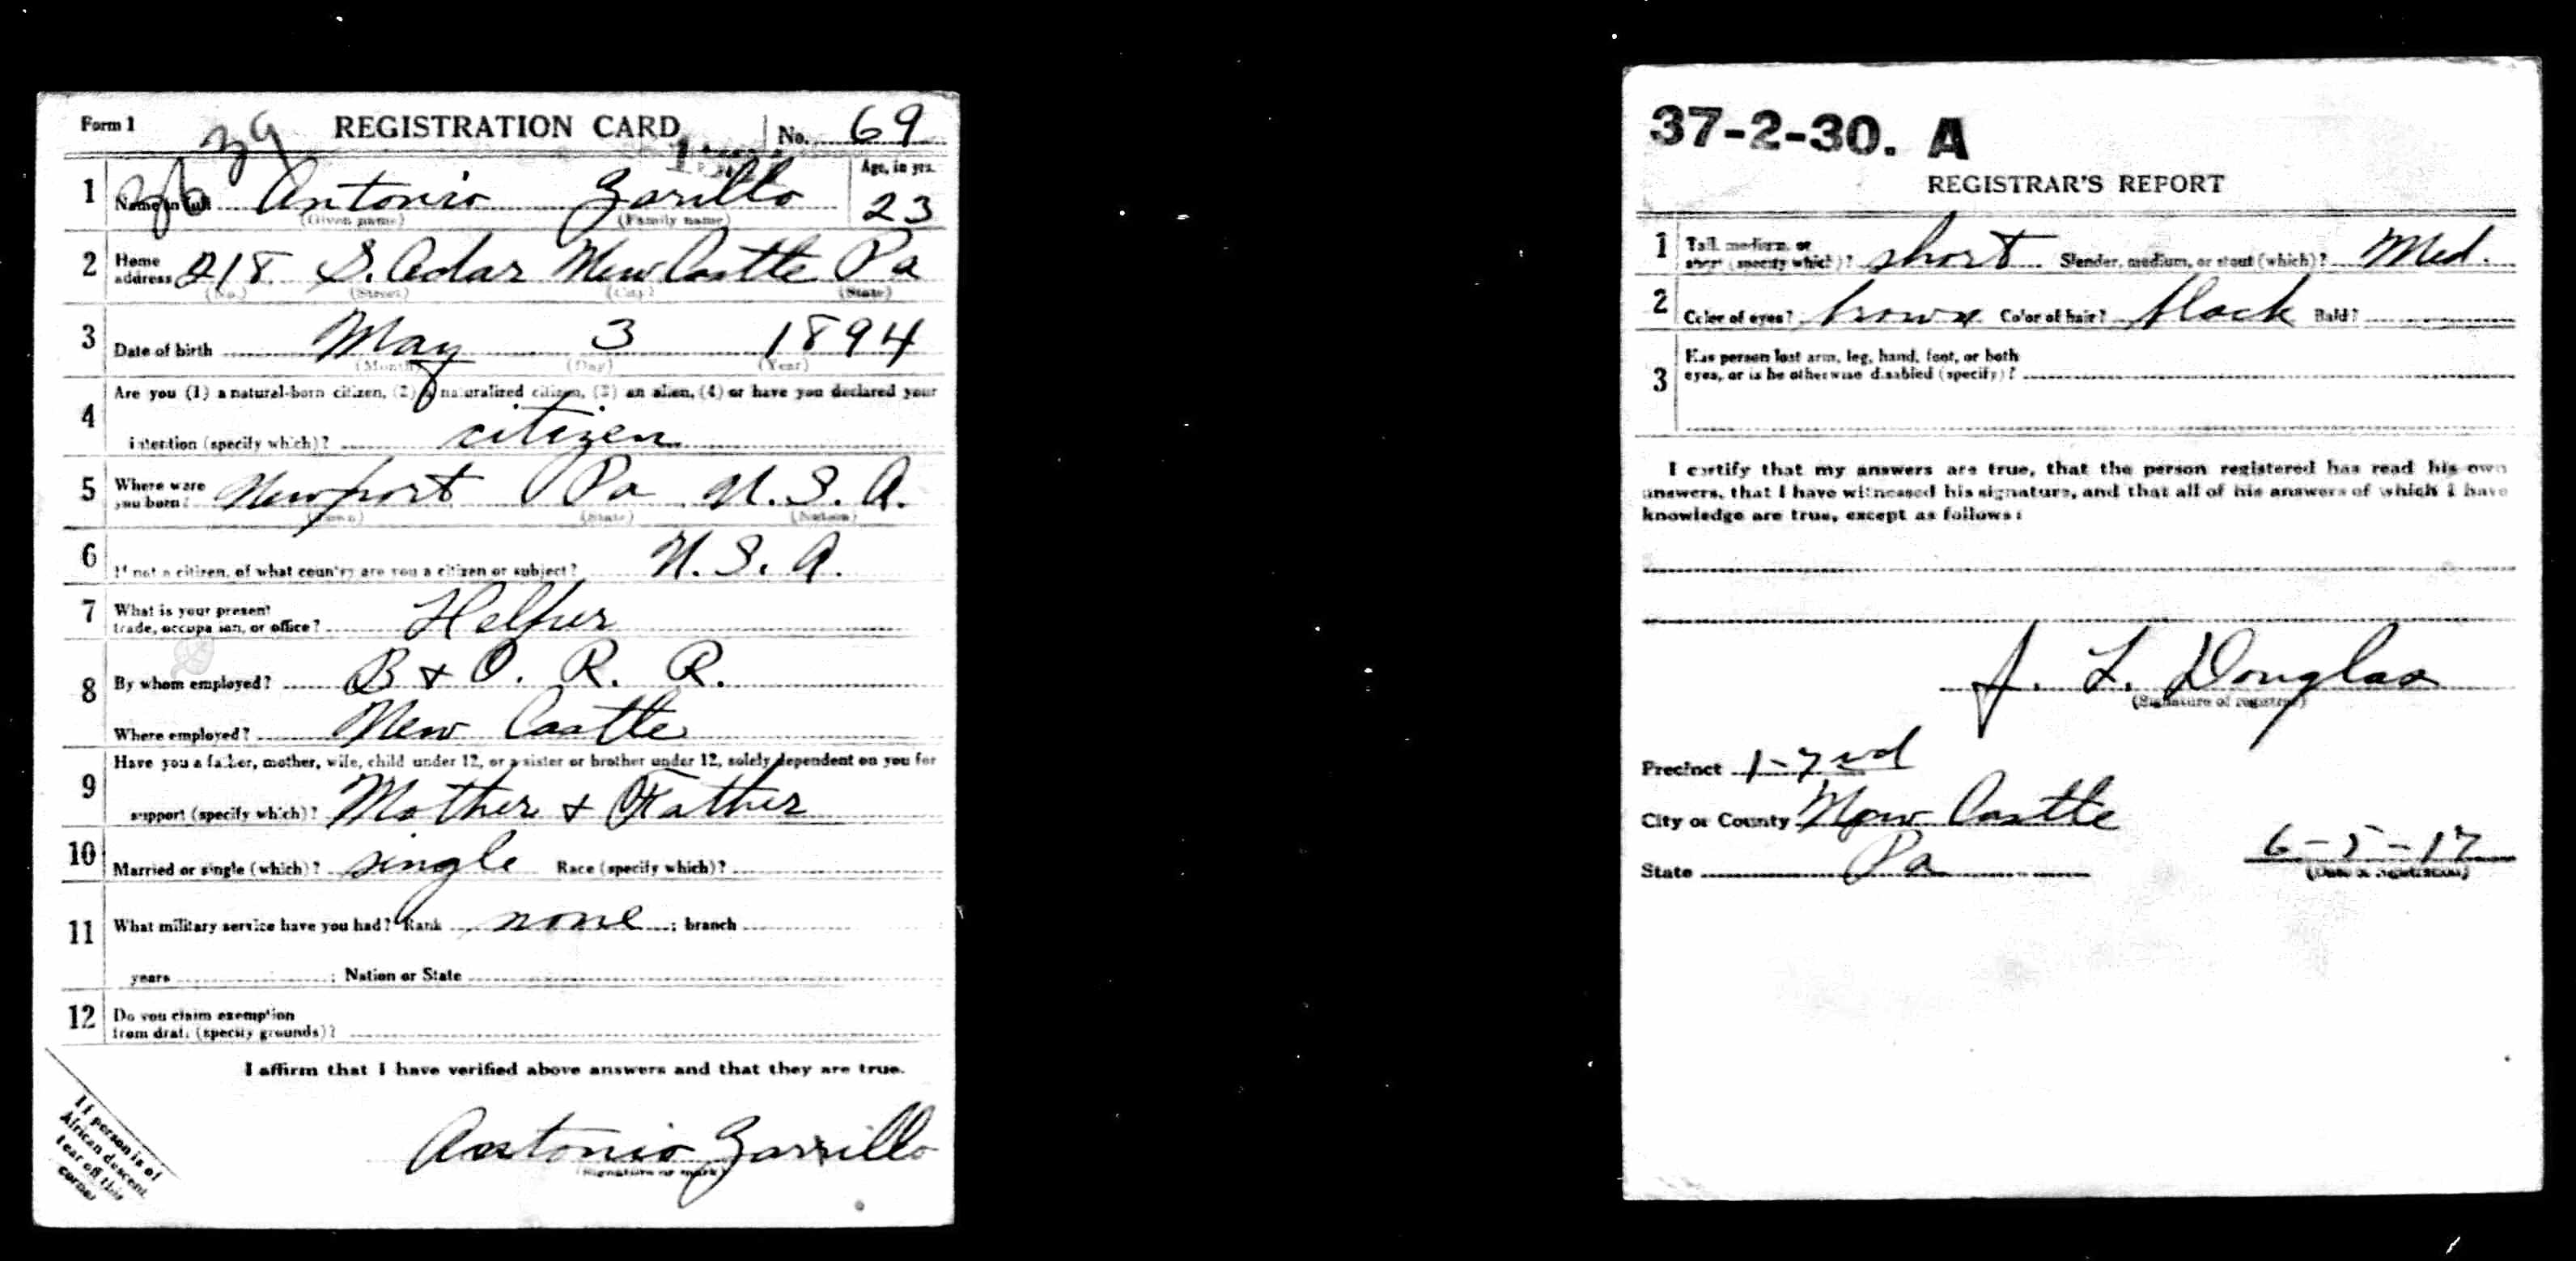 Form 1 39 REGISTRATION CARD No. 69
1 Name in full Antonio Zarillo Age, in yrs. 23
(Given name) (Family name)
2 Home address 218 S. Cedar New Castle Pa
(No.) (Street) (City) (State)
3 Date of birth May 3 1894
(Month) (Day) (Year)
4 Are you (1) a natural-born citizen, (2) a naturalized citizen, (3) an alien, (4) or have you declared your
intention (specify which)? citizen
5 Where were you born? Newport Pa U.S.A.
(Town) (State) (Nation)
6 If not a citizen, of what country are you a citizen or subject? U.S.A.
7 What is your present
trade, occupation, or office? Helper
8 By whom employed? B + O. R. R.
Where employed? New Castle
9 Have you a father, mother, wife, child under 12, or a sister or brother under 12, solely dependent on you for
support (specify which)? Mother + Father
10 Married or single (which)? single Race (specify which)?
11 What military service have you had? Rank none ; branch
years ; Nation or State
12 Do you claim exemption
from draft (specify grounds)?
I affirm that I have verified above answers and that they are true.
Antonio Zarrillo
(Signature or mark)
If person is of
African descent
tear off this
corner
37-2-30. A
REGISTRAR'S REPORT
1 Tall, medium, or
short (specify which)? short Slender, medium, or stout (which)? Med.
2 Color of eyes? brown Color of hair? black Bald?
3 Has person lost arm, leg, hand, foot, or both
eyes, or is he otherwise disabled (specify)?
I certify that my answers are true, that the person registered has read his own
answers, that I have witnessed his signature, and that all of his answers of which I have
knowledge are true, except as follows:
J. L. Douglas
(Signature of registrar)
Precinct 1-2nd
City or County New Castle
State Pa 6-5-17
(Date of registration)